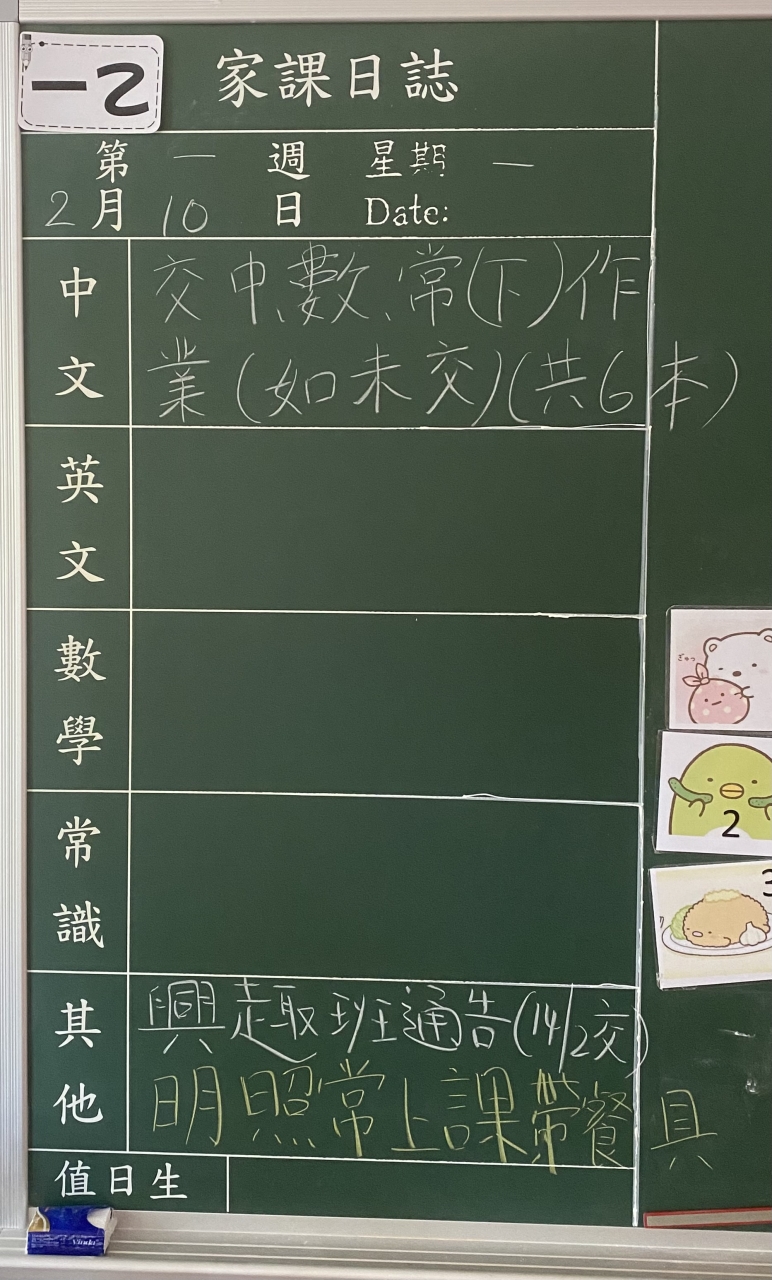 一乙
家課日誌
第 一 週 星期 一
2月 10 日 Date:
中文
交中、數、常(下)作
業(如未交)(共6本)
英文
數學
常識
2
3
其他
興趣班通告(14/2交)
明照常上課帶餐具
值日生